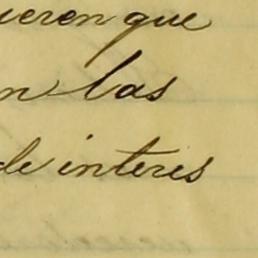 ueron que
n las
de interes